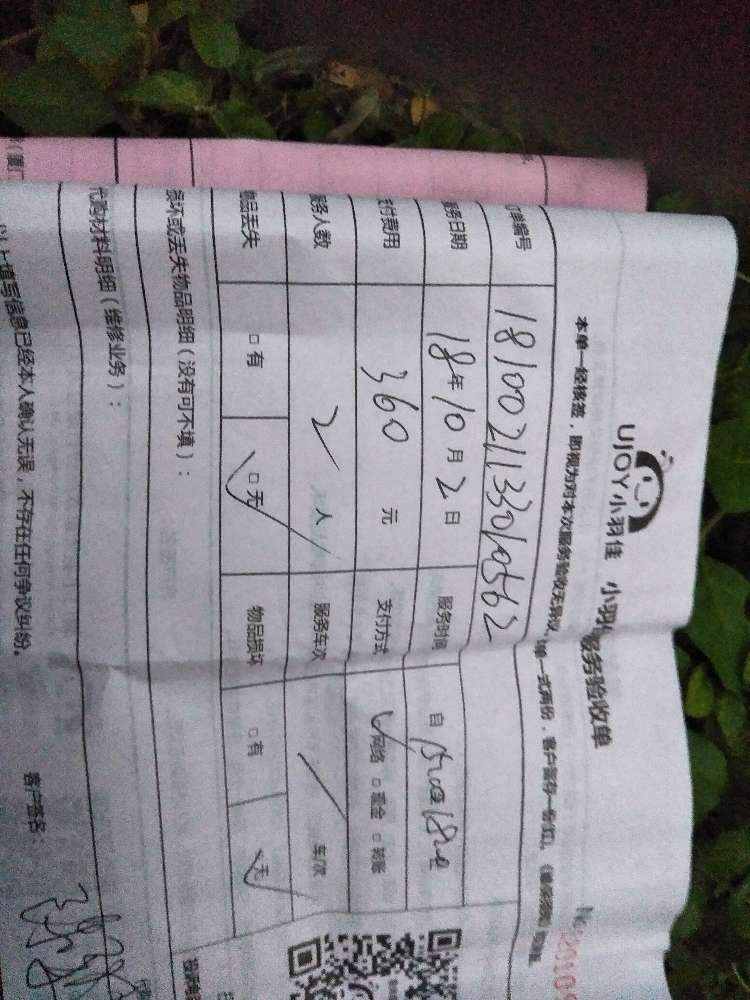 UJOY小羽佳
服务验收单
本单一经核签,即视为对本次服务验收无异议
一式两份,客户留存一份
订单编号 1810021133010562
服务日期 18年10月2日 服务时间 自
支付费用 360 元 支付方式 网络 □现金 □转账
服务人数 2 人 服务车次 / 车/次
物品丢失 □有 □无 物品损坏 □有 无
损坏或丢失物品明细(没有可不填):
代购材料明细(维修业务):
以上填写信息已经本人确认无误,不存在任何争议纠纷。
客户签名: